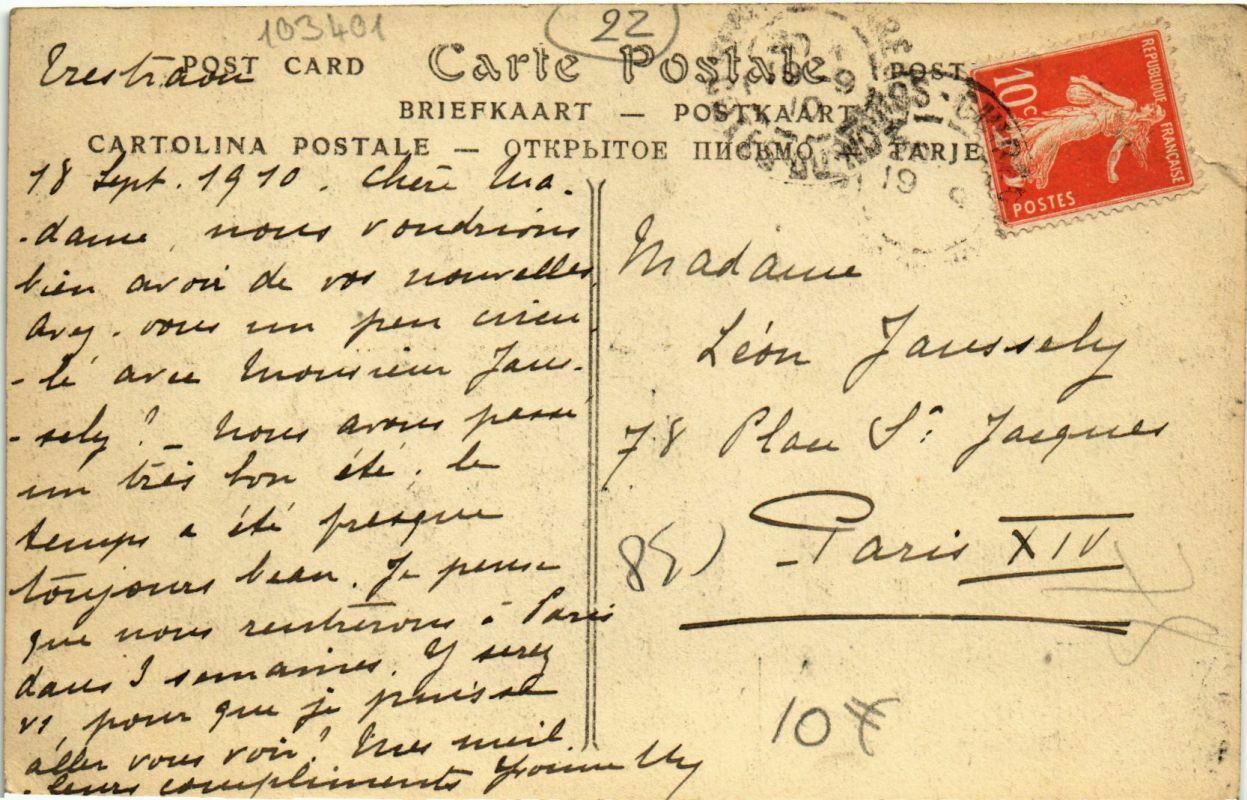 103401
22
Trestraou
POST CARD Carte Postale POST
BRIEFKAART — POSTKAART
CARTOLINA POSTALE — ОТКРЫТОЕ ПИСЬМО — TARJE
REPUBLIQUE FRANÇAISE
10c
POSTES
PERROS-GUIREC
18 Sept. 1910. Chère Ma-
-dame, nous voudrions
bien avoir de vos nouvelles,
avez-vous un peu circu-
-lé avec Monsieur Jaus-
-sely? - Nous avons passé
un très bon été. le
temps a été presque
toujours beau. Je pense
que nous rentrerons à Paris
dans 3 semaines. Y serez
vs, pour que je puisse
aller vous voir? Mes meil-
-leurs compliments Yvonne
Madame
Léon Jaussely
78 Place St Jacques
Paris XIV
10€